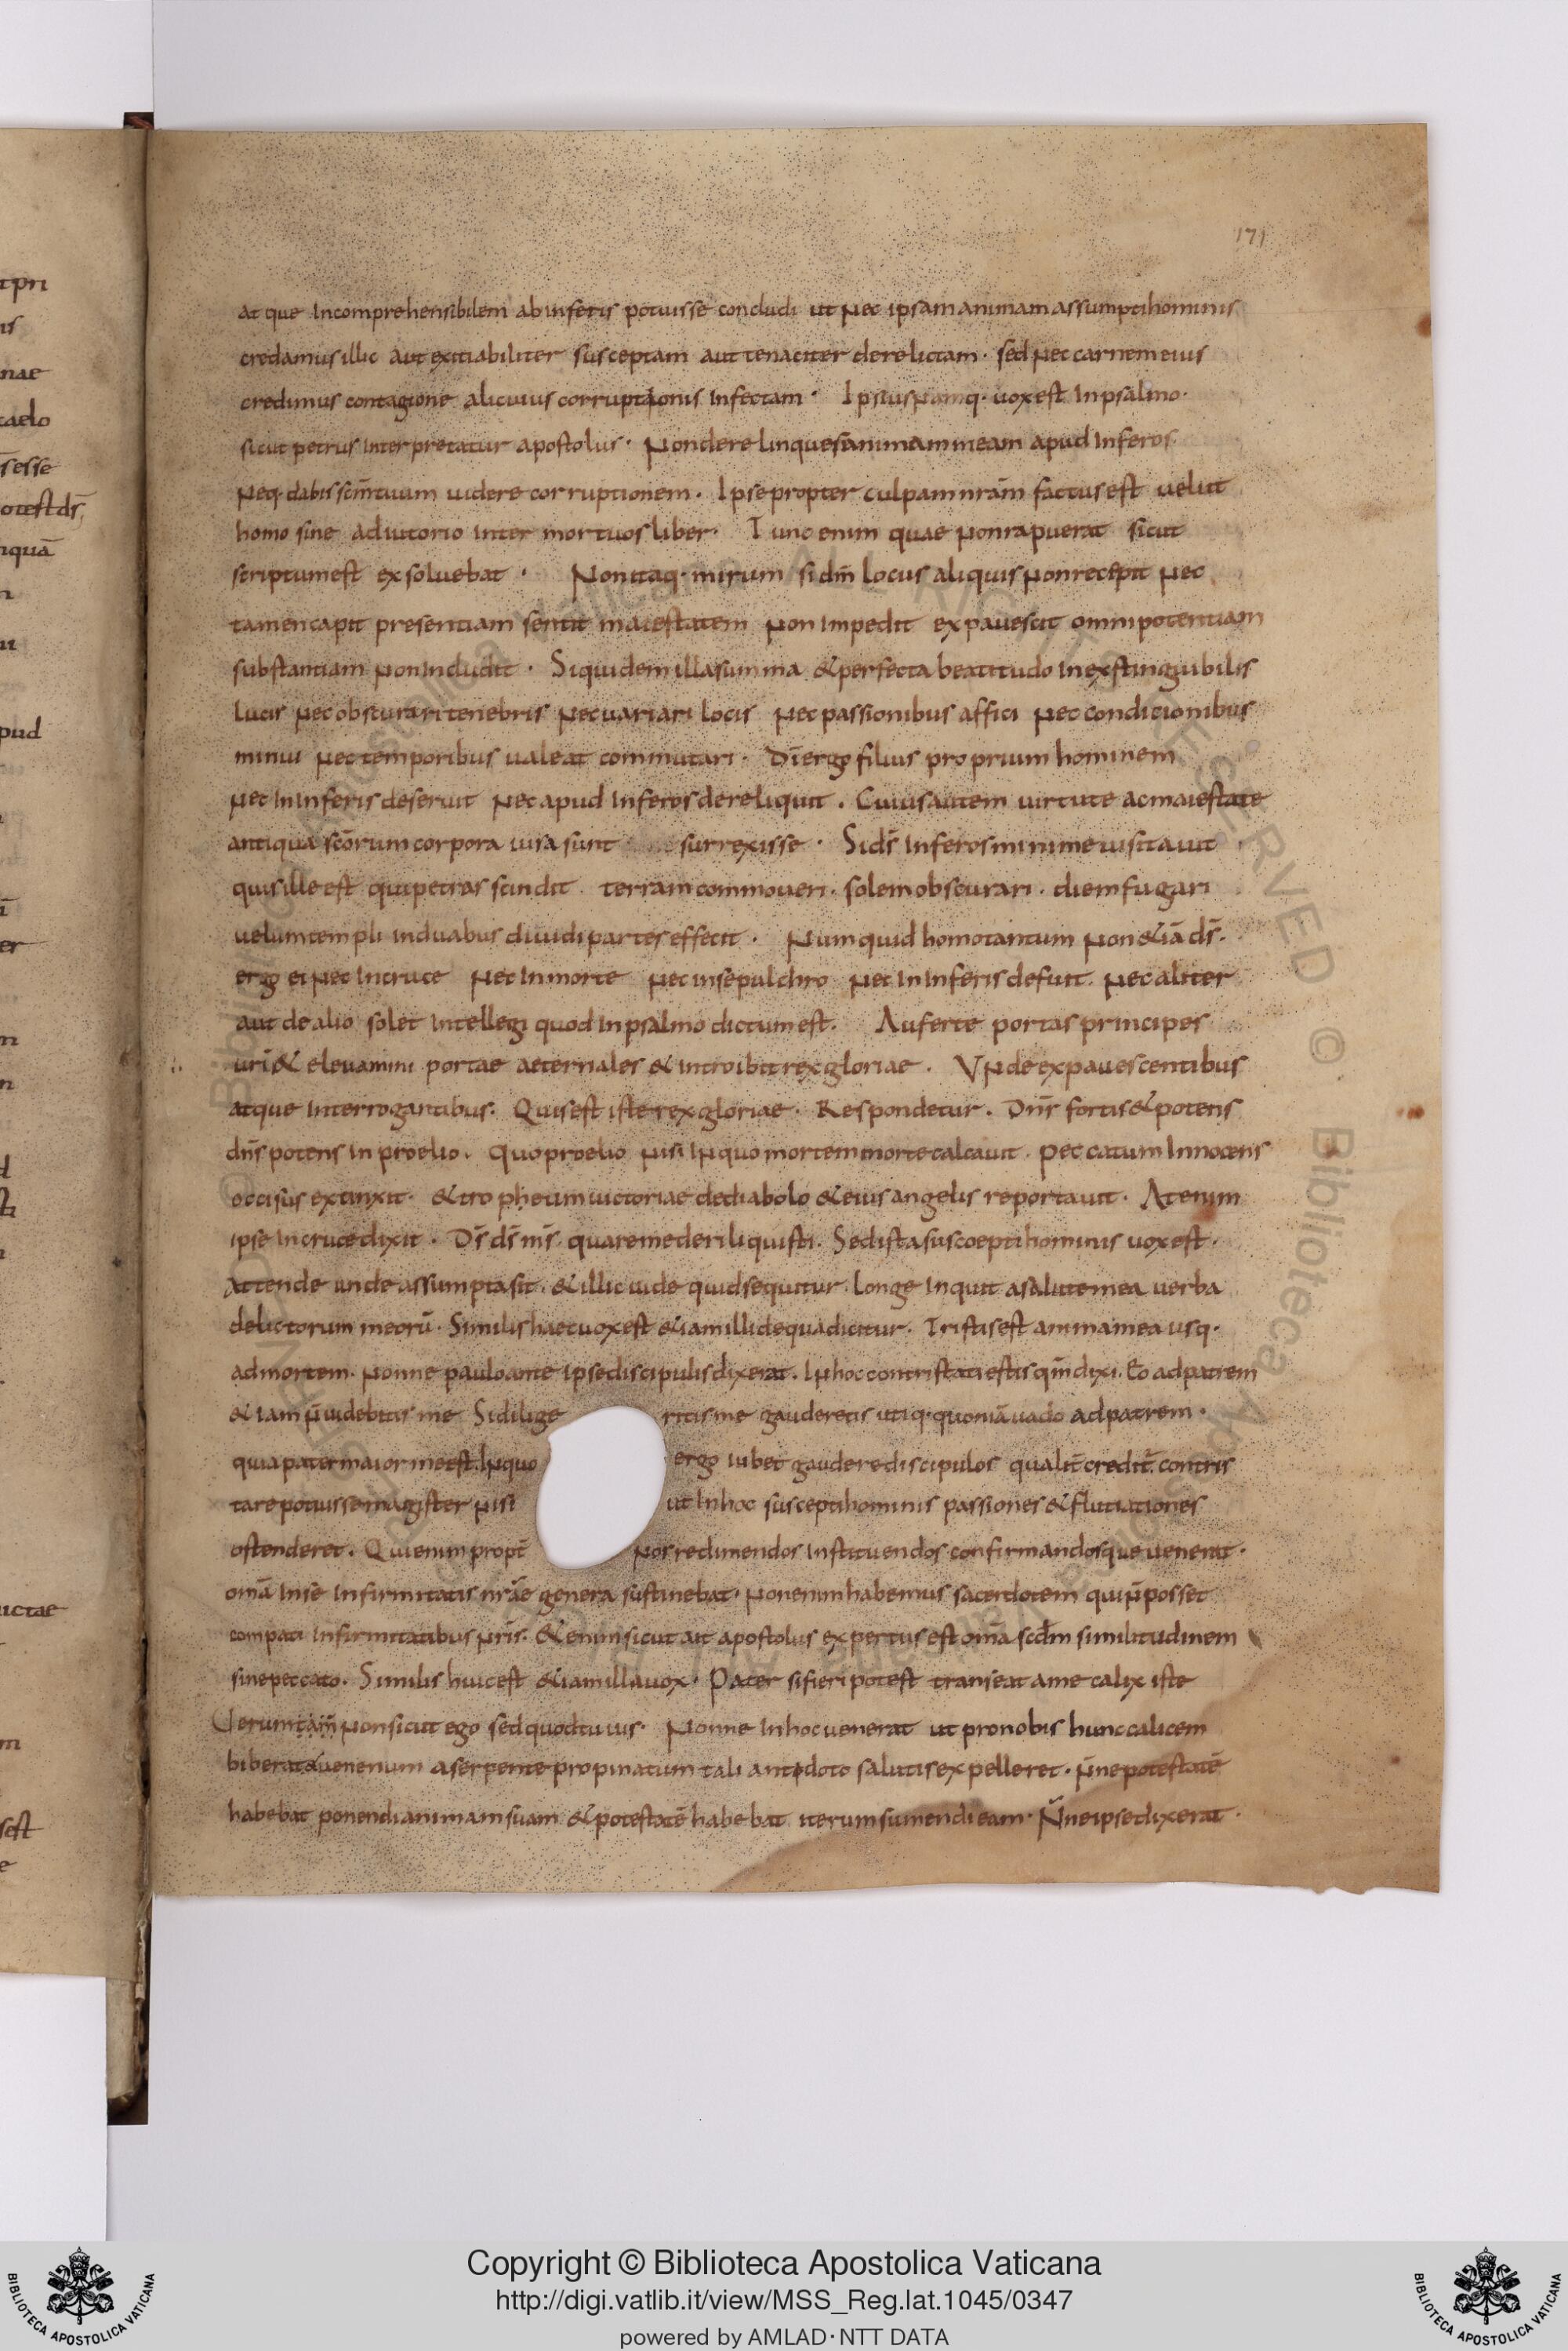 171
atque incomprehensibilem ab inferis potuisse concludi ut nec ipsam animam assumpti hominis
credamus illic aut exitiabiliter susceptam aut tenaciter derelictam · sed nec carnem eius
credimus contagione alicuius corruptionis infectam · Ipsius namq· uox est in psalmo ·
sicut petrus interpretatur apostolus · Non derelinques animam meam apud inferos
neq· dabis scm̄ tuum uidere corruptionem · Ipse propter culpam nrām factus est uelut
homo sine adiutorio inter mortuos liber · Tunc enim quae non rapuerat sicut
scriptum est exsoluebat · Non itaq· mirum si dm̄ locus aliquis non recepit nec
tamen capit presentiam sentit maiestatem non impedit expauescit omnipotentiam
substantiam non includit · Siquidem illa summa & perfecta beatitudo inexstinguibilis
lucis nec obscurari tenebris nec uariari locis nec passionibus affici nec condicionibus
minui nec temporibus ualeat commutari · Dī ergo filius proprium hominem
nec in inferis deseruit nec apud inferos dereliquit · Cuius autem uirtute ac maiestate
antiqua scōrum corpora uisa sunt surrexisse · Si ds̄ inferos minime uisitauit
quis ille est qui petras scindit terram commoueri · solem obscurari · diem fugari
uelum templi in duabus diuidi partes effecit · Numquid homo tantum non &iā ds̄ ·
ergo ei nec in cruce nec in morte nec in sepulchro nec in inferis defuit nec aliter
aut de alio solet intellegi quod in psalmo dictum est · Auferte portas principes
urī & eleuamini portae aeternales & introibit rex gloriae · Vnde expauescentibus
atque interrogantibus · Quis est iste rex gloriae · Respondetur · Dns̄ fortis & potens
dns̄ potens in proelio · Quo proelio nisi in quo mortem morte calcauit · peccatum innocens
occisus extinxit · & tropheum uictoriae de diabolo & eius angelis reportauit · At enim
ipse in cruce dixit · Ds̄ ds̄ ms̄ quare me deriliquisti · Sed ista suscoepti hominis uox est ·
Attende unde assumpta sit · & illic uide quid sequitur · Longe inquit a salute mea uerba
delictorum meorū · Similis haec uox est &iam illi de qua dicitur · Tristis est anima mea usq·
ad mortem · Nonne paulo ante ipse discipulis dixerat · In hoc contristati estis qm̄ dixi · Eo ad patrem
& iam n̄ uidebitis me Si dilige ritis me gauderetis utiq· quoniā uado ad patrem ·
quia pater maior me est · In quo ergo iubet gaudere discipulos qualit̄ credit̄ contris
tare potuisse magister nisi ut in hoc suscepti hominis passiones & fluctationes
ostenderet · Qui enim propt̄ nos redimendos instituendos confirmandosque uenerat ·
omā in se infirmitatis nrāe genera sustinebat · Non enim habemus sacerdotem qui n̄ posset
compati infirmitatibus nrīs · &enim sicut ait apostolus expertus est omā scdm̄ similitudinem
sine peccato · Similis huic est &iam illa uox · Pater si fieri potest transeat a me calix iste
Verumtam̄ non sicut ego sed quod tu uis · Nonne in hoc uenerat ut pro nobis hunc calicem
biberat & uenenum a serpente propinatum tali antidoto salutis expelleret · n̄ne potestatē
habebat ponendi animam suam & potestatē habebat iterum sumendi eam · N̄ne ipse dixerat ·
Copyright © Biblioteca Apostolica Vaticana
http://digi.vatlib.it/view/MSS_Reg.lat.1045/0347
powered by AMLAD·NTT DATA